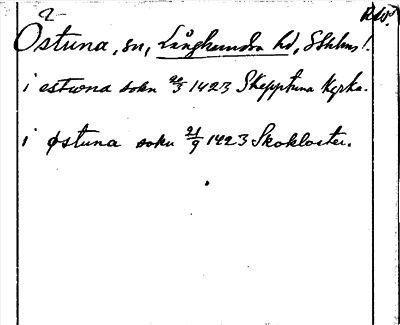 2
R.W.
Östuna, sn, Långhundra hd, Sthlms l.
i østuna sokn 28/3 1423 Skepptuna kyrka.
i østuna sokn 21/9 1423 Skokloster.